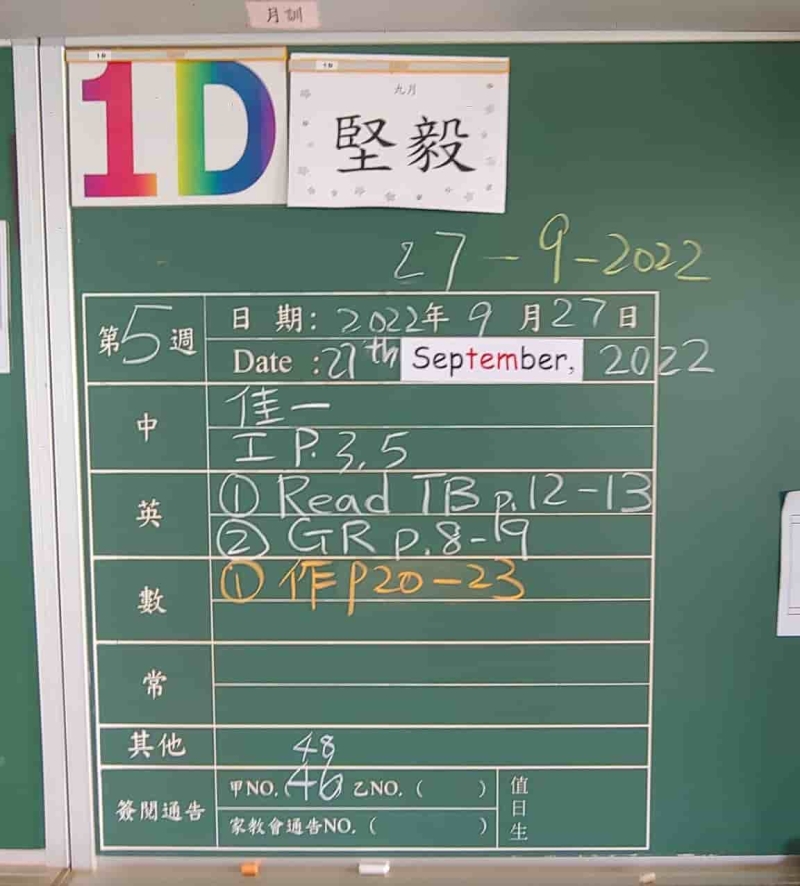 月訓
1D
九月
堅毅
27-9-2022
第5週
日期：2022年9月27日
Date : 27th September, 2022
中
佳一
工 P.3,5
英
① Read TB p.12-13
② GR p.8-19
數
① 作 p20-23
常
其他
48
簽閱通告
甲NO.(46 乙NO.( )
家教會通告NO.( )
值日生